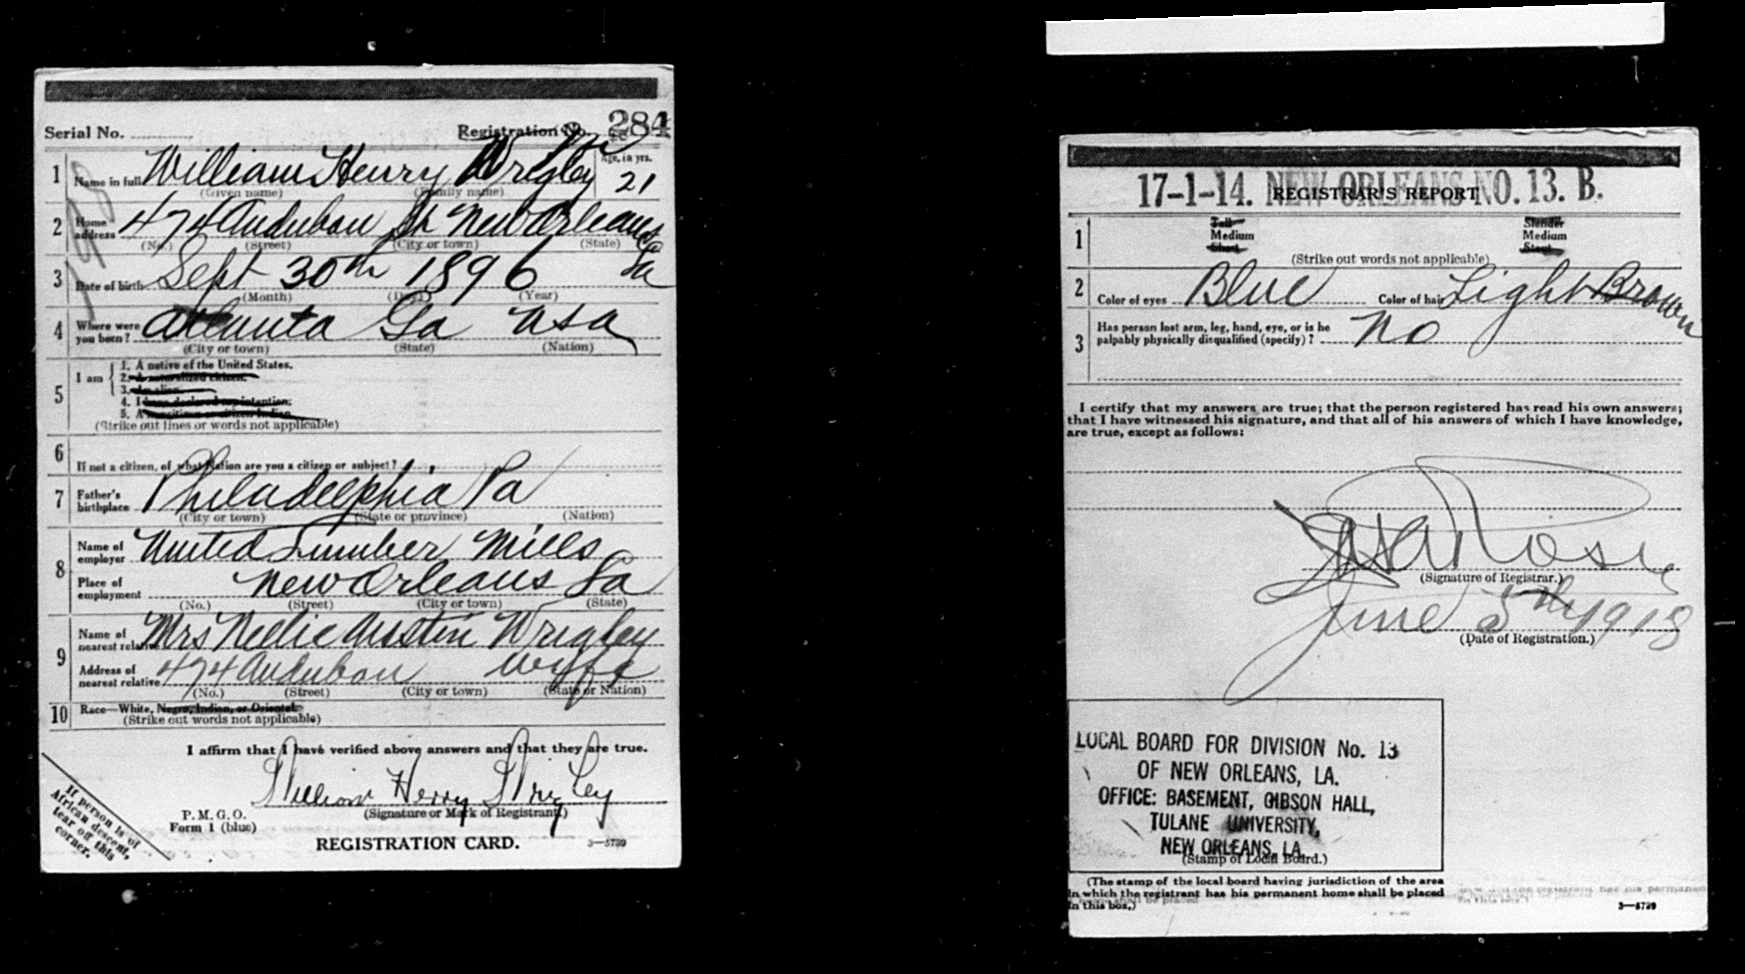 Serial No. Registration No. 284
1 Name in full William Henry Wrigley Age, in yrs. 21
(Given name) (Family name)
2 Home address 474 Audubon St New Orleans La
(No.) (Street) (City or town) (State)
3 Date of birth Sept 30th 1896
(Month) (Day) (Year)
4 Where were you born? Atlanta Ga USA
(City or town) (State) (Nation)
5 I am
1. A native of the United States.
2. A naturalized citizen.
3. An alien.
4. I have declared my intention.
5. A noncitizen or citizen Indian.
(Strike out lines or words not applicable)
6 If not a citizen, of what Nation are you a citizen or subject?
7 Father's birthplace Philadelphia Pa
(City or town) (State or province) (Nation)
8 Name of employer United Lumber Mills
Place of employment New Orleans La
(No.) (Street) (City or town) (State)
9 Name of nearest relative Mrs Nellie Austin Wrigley
Address of nearest relative 474 Audubon wife
(No.) (Street) (City or town) (State or Nation)
10 Race—White, Negro, Indian, or Oriental.
(Strike out words not applicable)
I affirm that I have verified above answers and that they are true.
William Henry Wrigley
P. M. G. O. (Signature or Mark of Registrant)
Form 1 (blue)
REGISTRATION CARD. 3—5739
If person is of
African descent,
tear off this
corner.
17-1-14. NEW ORLEANS NO. 13. B.
REGISTRAR'S REPORT
1 Tall Slender
Medium Medium
Short Stout
(Strike out words not applicable)
2 Color of eyes Blue Color of hair Light Brown
3 Has person lost arm, leg, hand, eye, or is he
palpably physically disqualified (specify)? No
I certify that my answers are true; that the person registered has read his own answers;
that I have witnessed his signature, and that all of his answers of which I have knowledge,
are true, except as follows:
(Signature of Registrar.)
June 5th 1918
(Date of Registration.)
LOCAL BOARD FOR DIVISION No. 13
OF NEW ORLEANS, LA.
OFFICE: BASEMENT, GIBSON HALL,
TULANE UNIVERSITY,
NEW ORLEANS, LA.
(Stamp of Local Board.)
(The stamp of the local board having jurisdiction of the area
in which the registrant has his permanent home shall be placed
in this box.)
3—5739